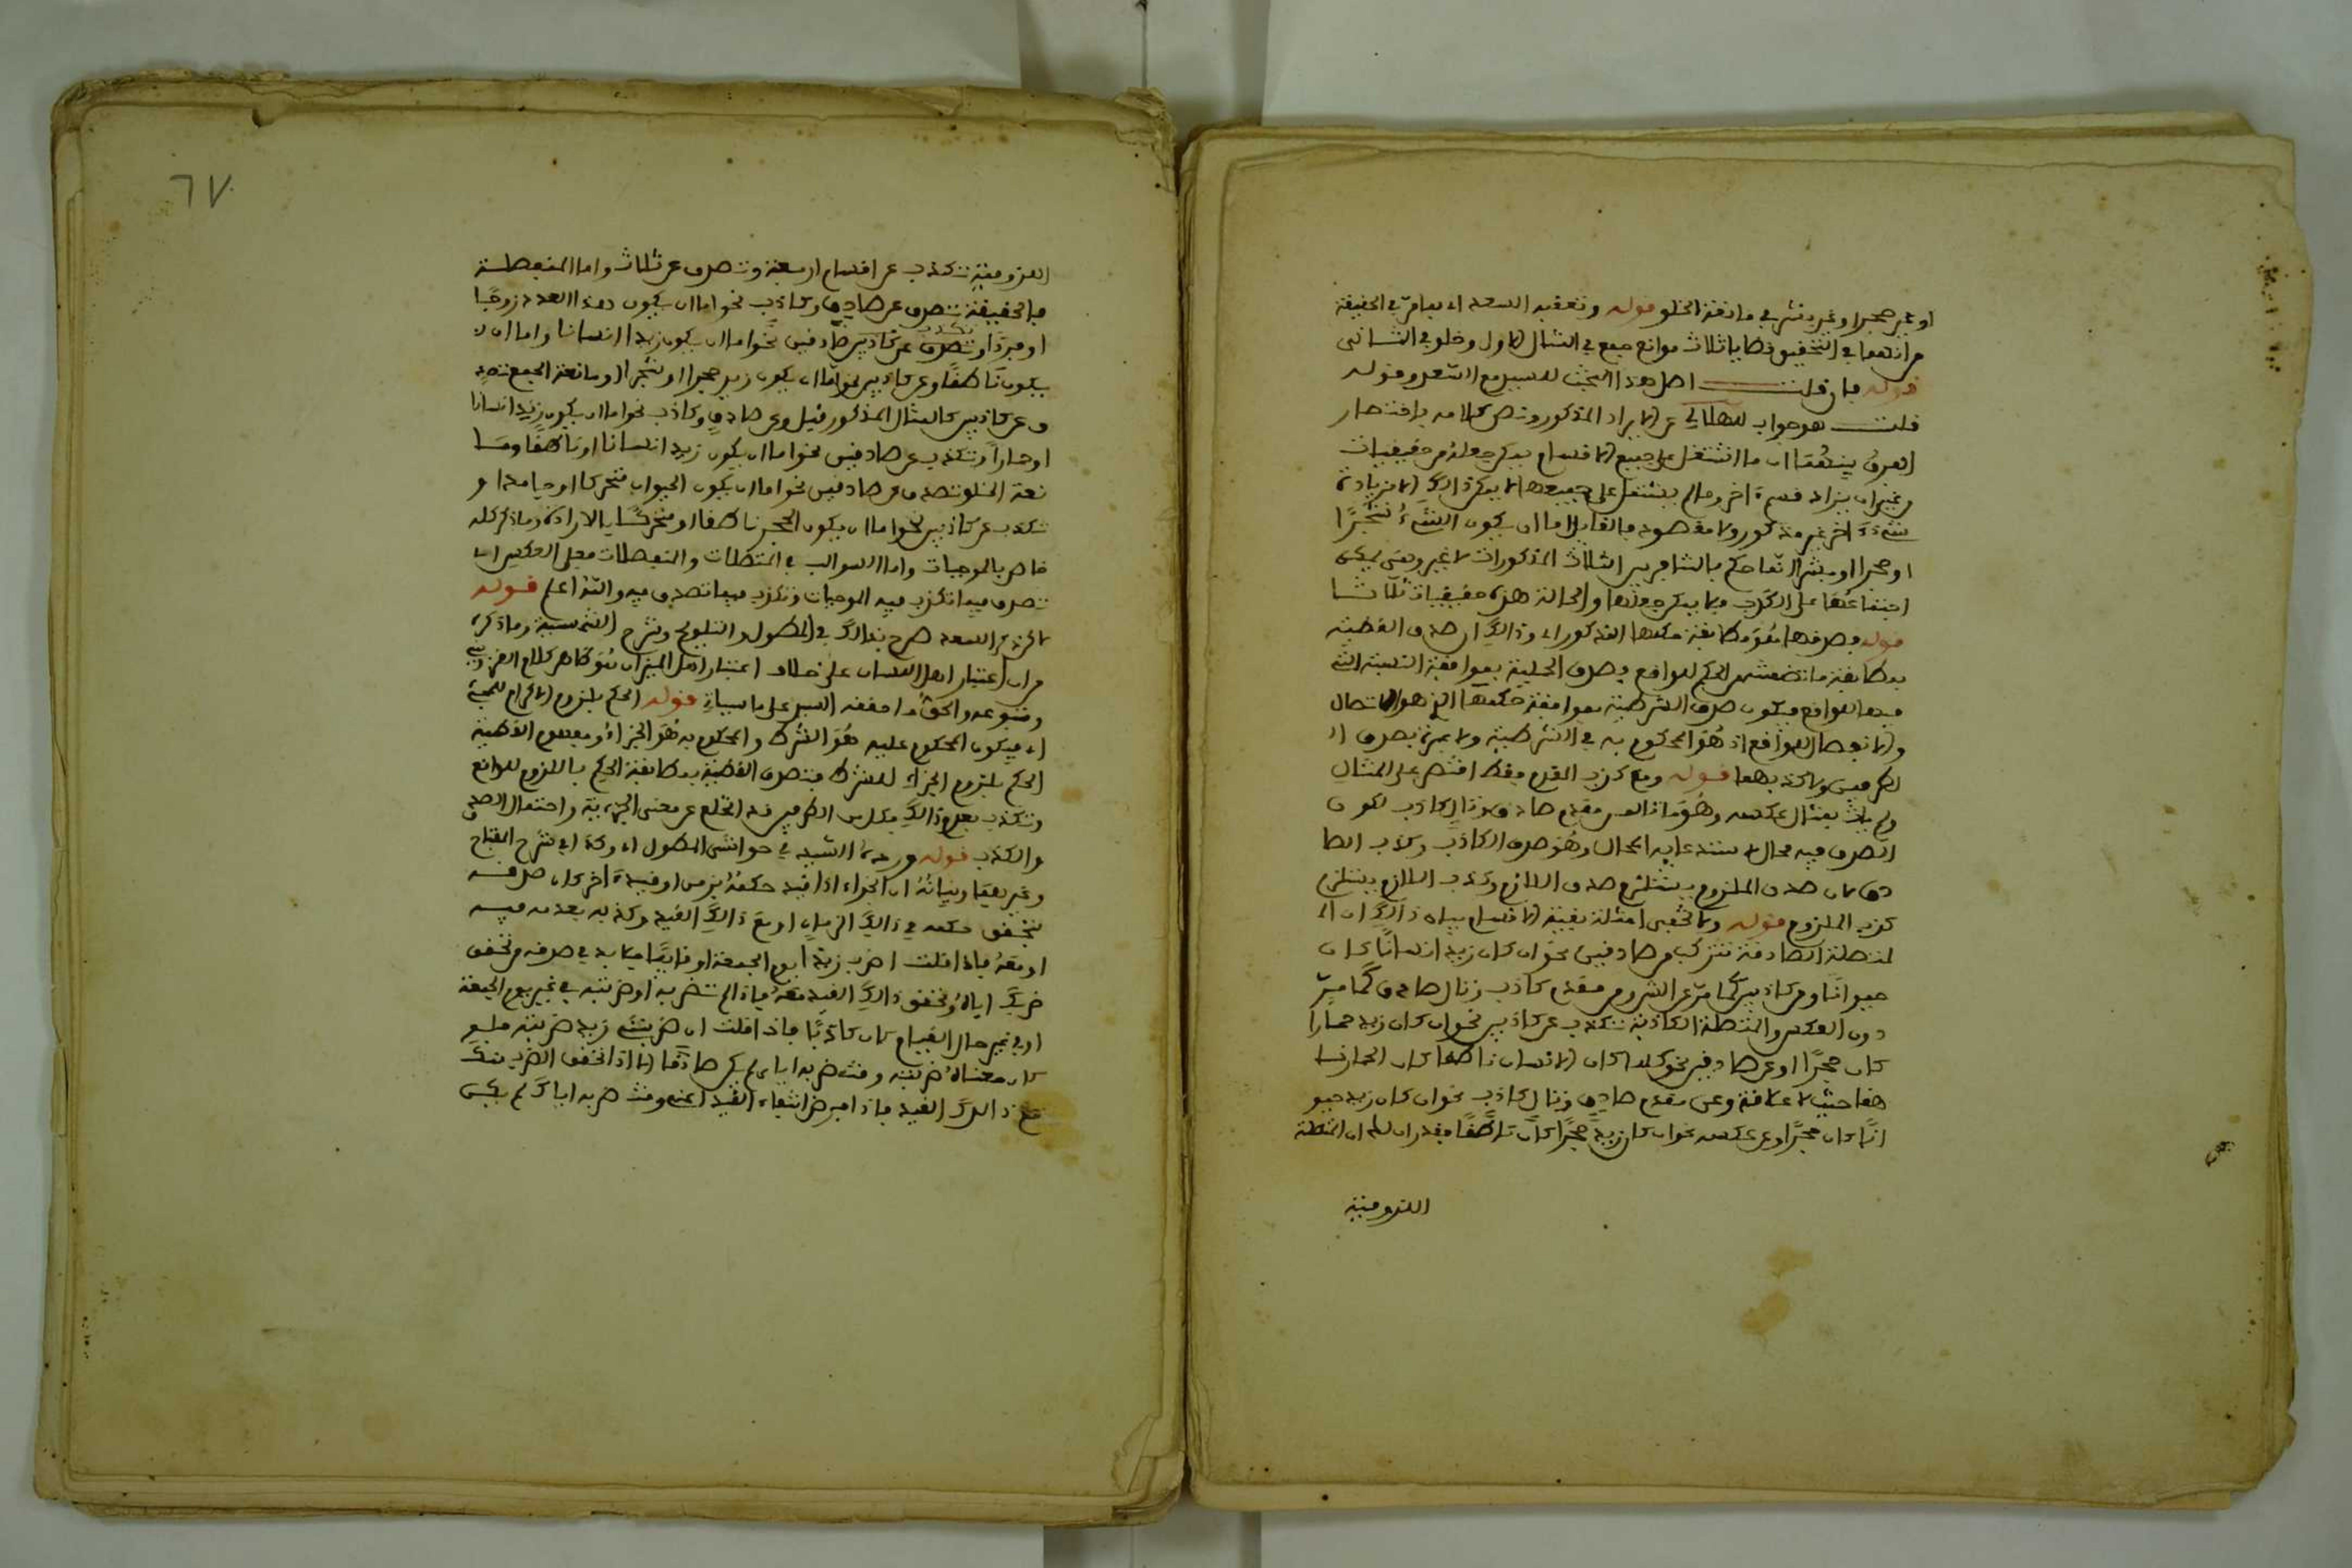 او غير حجر او غير بشر في مانعة الخلو قوله وتعقبه السعد اي بما مر في الحقيقة
من انهما في التحقيق قضايا ثلاث موانع جمع في المثال الاول وخلو في الثاني
قوله فان قلت اصل هذا البحث للسيد مع السعد وقوله
قلت هو جواب للهلالي عن الايراد المذكور ونص كلامه باختصار
الفرق بينهما ان ما اشتمل على جميع الاقسام يمكن جعله من حقيقيات
وغير ان يزاد قسم اخر وما لم يشتمل على جميعها لا يمكن ذالك الا بزيادة
شيء اخر غير مذكور ولا مقصود فالقايل اما ان يكون الشيء شجرا
او حجرا او بشرا انما حكم بالتنافر بين الثلاث المذكورات لا غير ومتى يمكن
اجتماعها على الكذب فما يمكن جعلها والحالة هذه حقيقيات ثلاثا
قوله وصدقها هو مطابقة حكمها المذكور اي وذالك ان صدق القضية
بمطابقة ما تضمنته من الحكم للواقع فصدق الحملية بموافقة النسبة التي
فيها للواقع فيكون صدق الشرطية بموافقة حكمها الذي هو الاتصال
والانفصال للواقع اذ هو المحكوم به في الشرطية ولا عبرة بصدق ا
لطرفين ولا كذبهما قوله ومع كذب المقدم فقط اقتصر على المثال
ولم يات بمثال عكسه وهو ما تالف من مقدم صادق وتال كاذب لكون
الصدق فيه محالا لاستدعايه المحال وهو صدق الكاذب وكذب الصا
دق لان صدق الملزوم يستلزم صدق اللازم وكذب اللازم يستلزم
كذب الملزوم قوله ولا تخفى امثلة بقية الاقسام بيان ذالك ان ا
لمتصلة الصادقة تتركب من صادقين نحو ان كان زيد انسانا كان
حيوانا ومن كاذبين كما مر عن الشروم من مقدم كاذب وتال صادق كما مر
دون العكس والمتصلة الكاذبة تتكذب عن كاذبين نحو ان كان زيد حمارا
كان حجرا او عن صادقين نحو كلما كان الانسان ناطقا كان الحمار نا
هقا حيث لا علاقة وعن مقدم صادق وتال كاذب نحو ان كان زيد حيو
انا كان حجرا وعن عكسه نحو ان كان زيد حجرا كان ناطقا فقد بان لك ان المتصلة
اللزومية
٦٧
اللزومية تتكذب عن اقسام اربعة وتصدق عن ثلاث واما المنفصلة
فالحقيقة تصدق عن صادق وكاذب نحو اما ان يكون هذا العدد زوجا
او فردا وتكذب عن كاذبين وصادقين نحو اما ان يكون زيد انسانا واما ان
يكون ناطقا وعن كاذبين نحو اما ان يكون زيد حجرا او شجرا ومانعة الجمع تصد
ق عن كاذبين كالمثال المذكور قبل وعن صادق وكاذب نحو اما ان يكون زيد انسانا
او حمارا وتكذب عن صادقين نحو اما ان يكون زيد انسانا او ناطقا وما
نعة الخلو تصدق عن صادقين نحو اما ان يكون الحيوان متحركا او حيا مدا و
تكذب عن كاذبين نحو اما ان يكون الحجر ناطقا او متحركا بالارادة وما ذكر كله
خاص بالموجبات واما السوالب في المتصلات والمنفصلات فعلى العكس اي
تصدق فيما تكذب فيه الموجبات وتكذب فيما تصدق فيه والله اعلم قوله
لاكن ذكر السعد صرح بذالك في المطول والتلويح وشرح الشمسية وما ذكره
من ان اعتبار اهل اللسان على خلاف اعتبار اهل الميزان هو ظاهر كلام القزويني
ومتبوعه والحق ما حققه السيد على ما سياتي قوله الحكم بلزوم الاكرام للمجيء
اي فيكون المحكوم عليه هو الشرط والمحكوم به هو الجزاء ومفهوم القضية
الحكم بلزوم الجزاء للشرط فتصدق القضية بمطابقة الحكم باللزوم للواقع
وتكذب بعدم ذالك فكل من الطرفين قد انخلع عن معنى الخبرية واحتمال الصدق
والكذب قوله ورده السيد في حواشي المطول اي وكذا في شرح المفتاح
وغيرهما وبيانه ان الجزاء اذا قيد حكمه بزمن او قيد اخر كان صدقه
بتحقق حكمه في ذالك الزمان او مع ذالك القيد وكذبه بعدمه فيه
او معه فاذا قلت اضرب زيدا يوم الجمعة او قايما فلا بد في صدقه من تحقق
ضربك اياه وتحقق ذالك القيد معه فاذا لم تضربه او ضربته في غير يوم الجمعة
او في غير حال القيام كان كاذبا فاذا قلت ان ضربني زيد ضربته فلو
كان معناه ضربته وقت ضربه اياي لم يكن صادقا الا اذا تحقق الضرب منك
مع ذالك القيد فاذا فرض انتفاء القيد اعني وقت ضربه اياك لم يكن